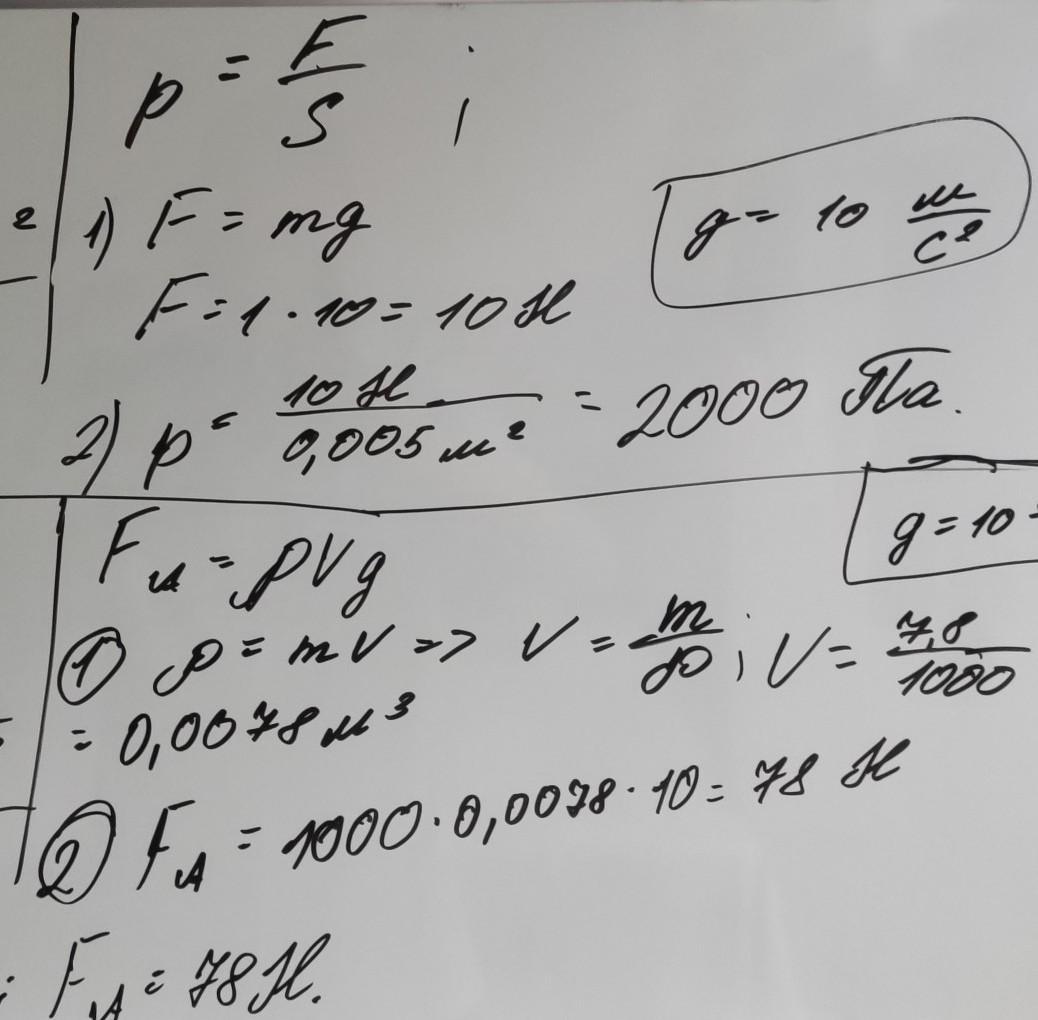 p = F/S ;
1) F = mg
g = 10 м/с²
F = 1 · 10 = 10 Н
2
2) p = 10 Н / 0,005 м² = 2000 Па.
g = 10
F_A = ρVg
① ρ = mV => V = m/ρ ; V = 7,8/1000
= 0,0078 м³
② F_A = 1000 · 0,0078 · 10 = 78 Н
: F_A = 78 Н.